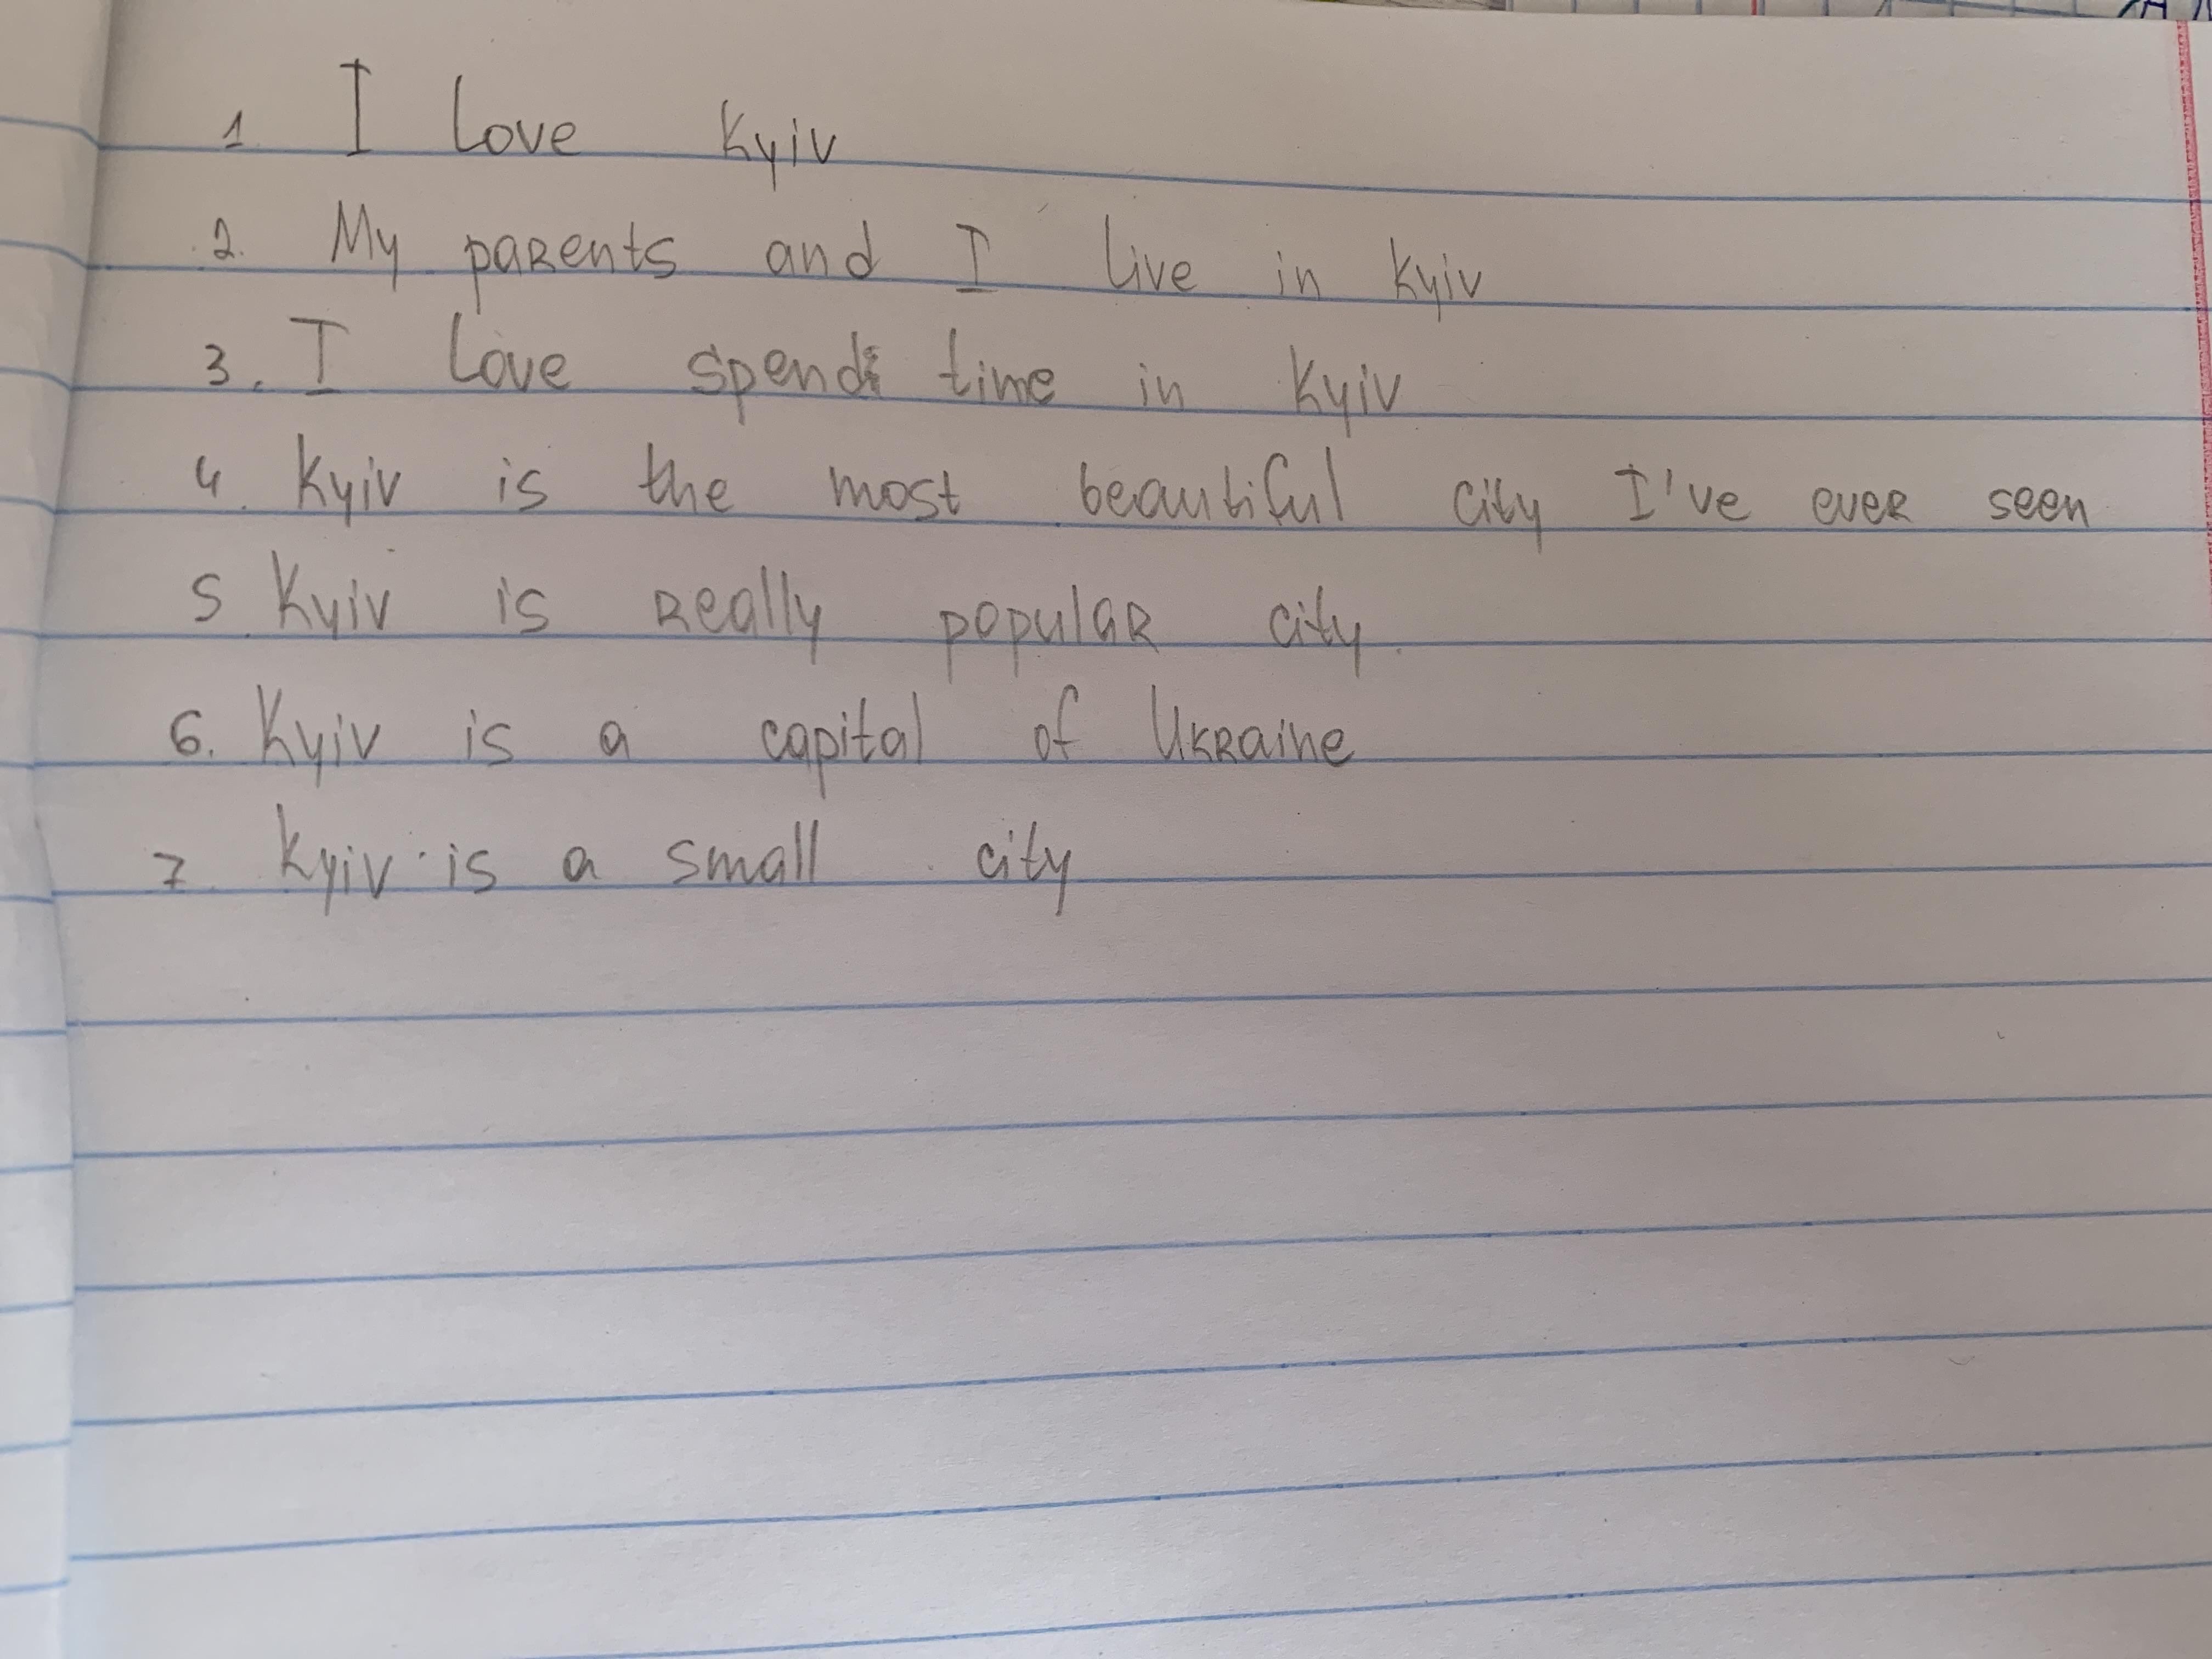 1. I love Kyiv
2. My parents and I live in Kyiv
3. I love spend time in Kyiv
4. Kyiv is the most beautiful city I've ever seen
5. Kyiv is really popular city.
6. Kyiv is a capital of Ukraine
7. Kyiv is a small city